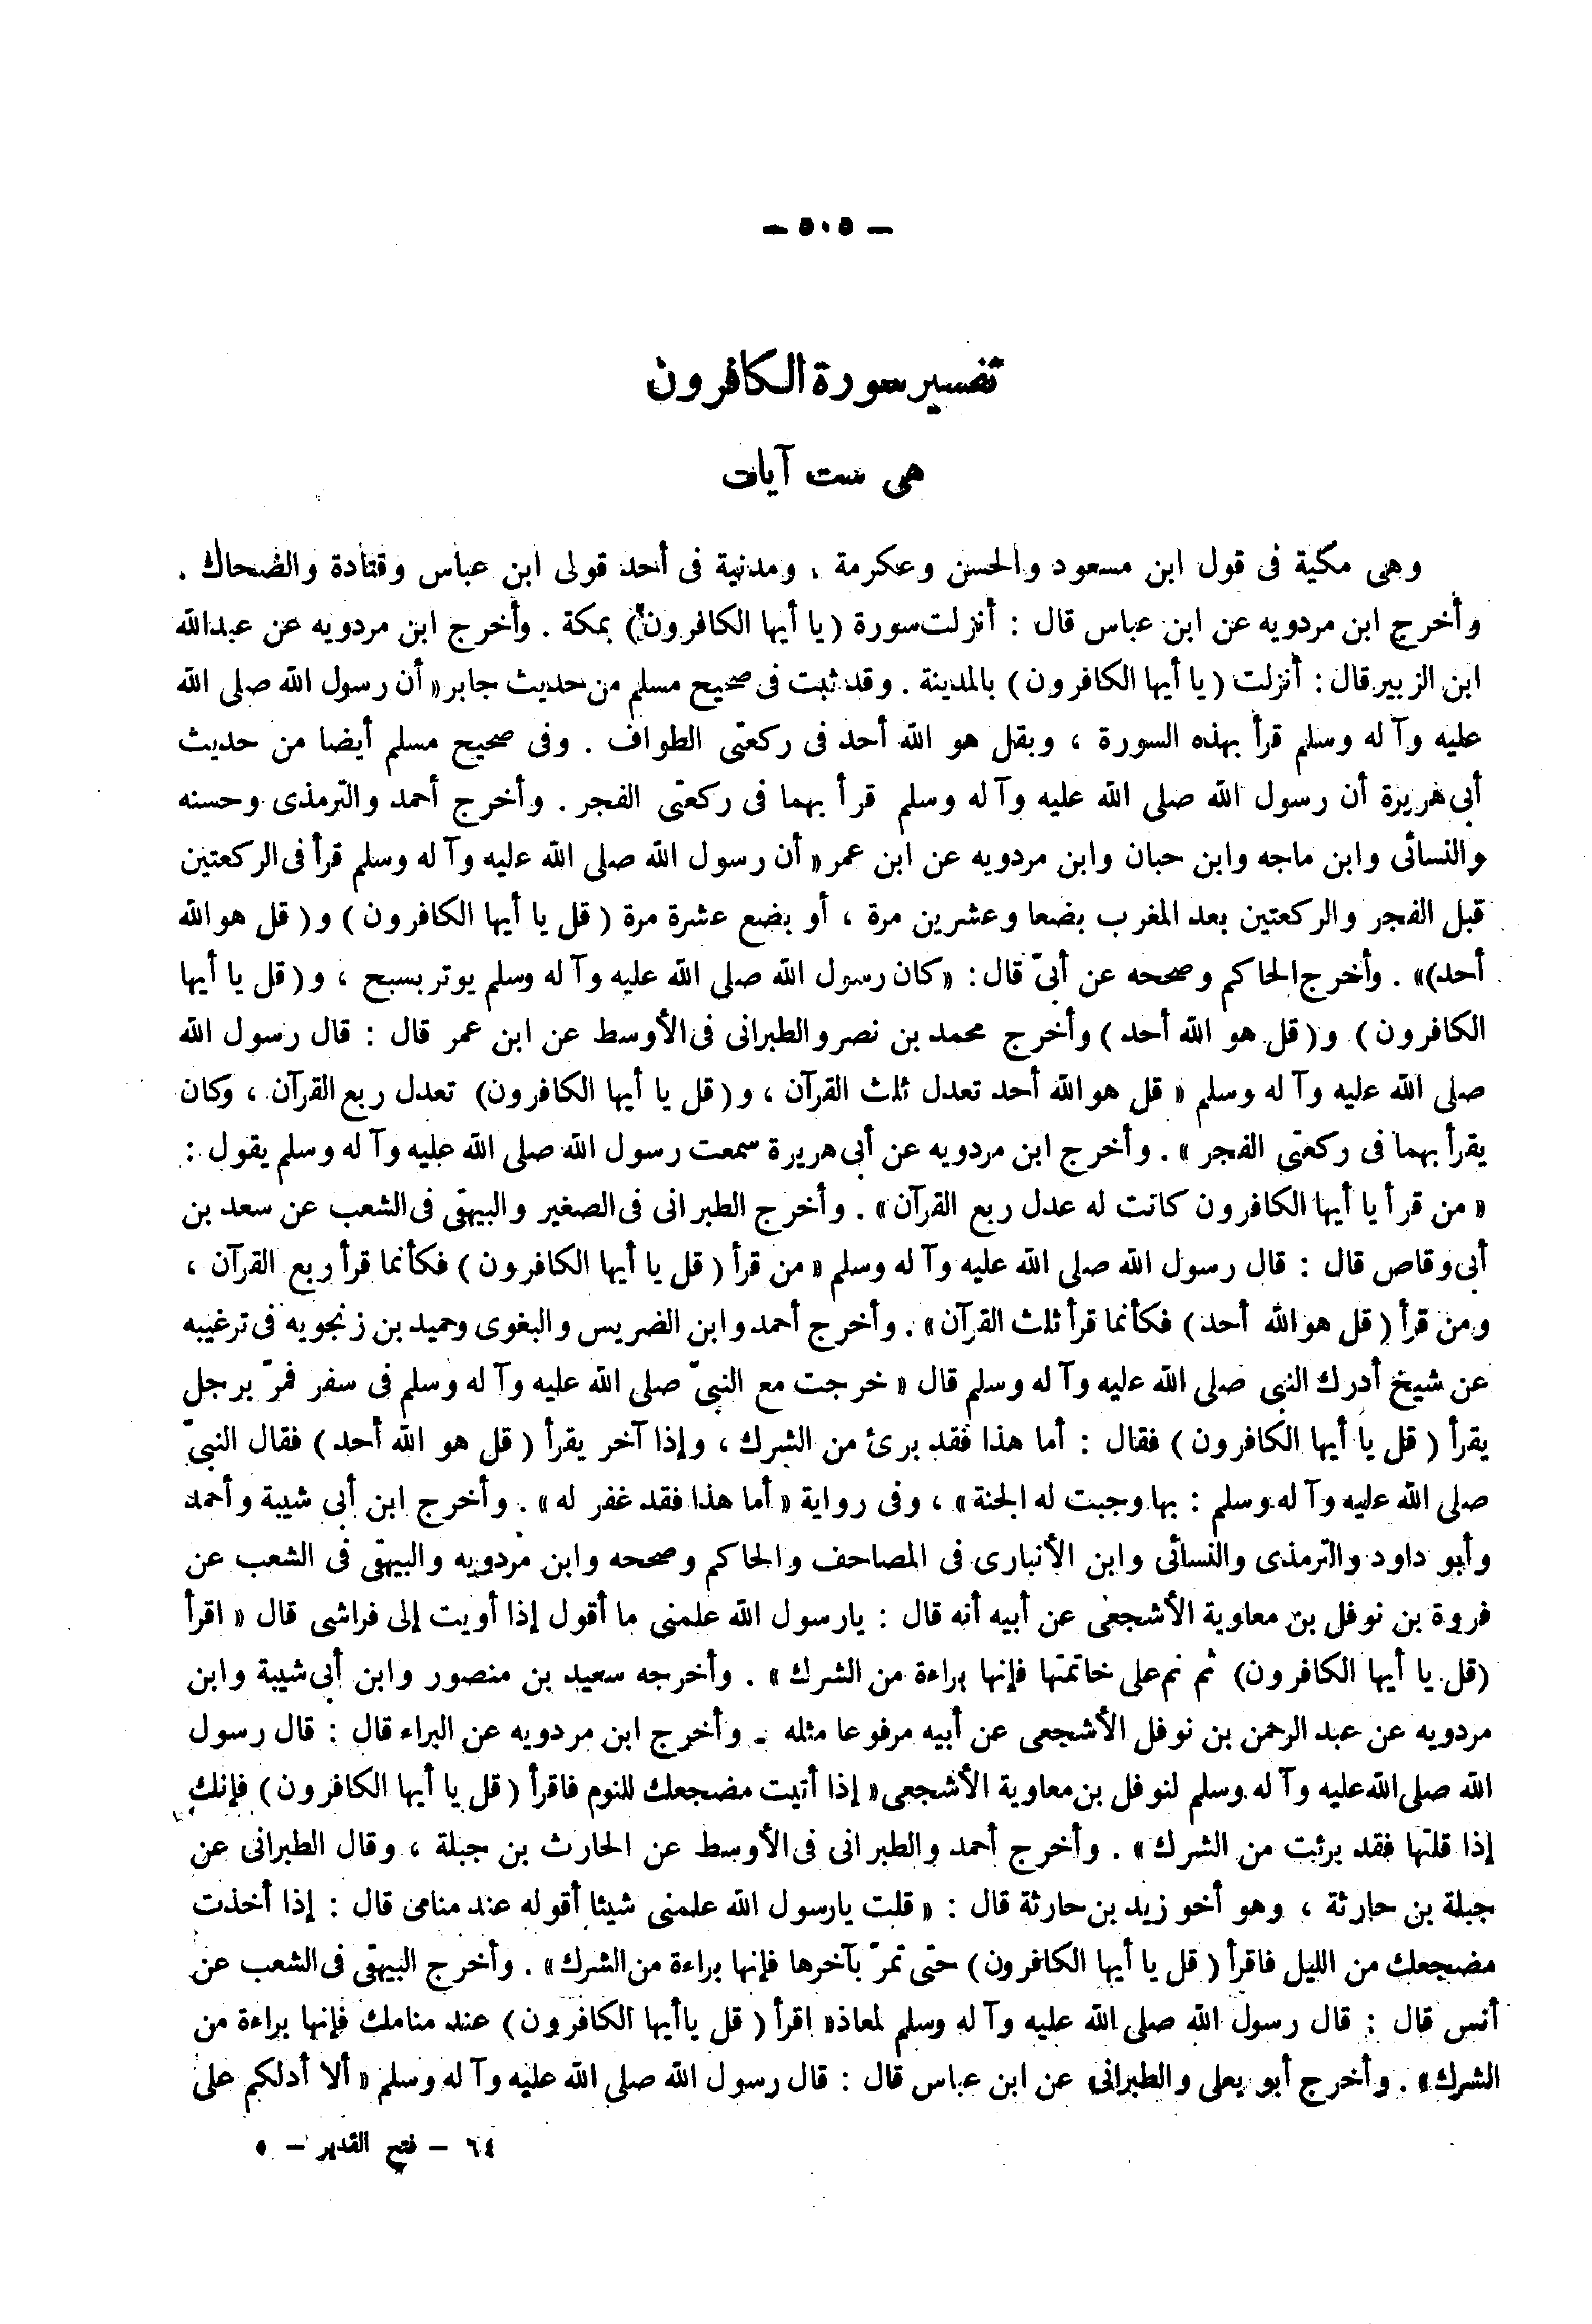 — ٥٠٥ —
تفسير سورة الكافرون
هى ست آيات
وهى مكية فى قول ابن مسعود والحسن وعكرمة ، ومدنية فى أحد قولى ابن عباس وقتادة والضحاك .
وأخرج ابن مردويه عن ابن عباس قال : أنزلت سورة (يا أيها الكافرون) بمكة . وأخرج ابن مردويه عن عبد الله
ابن الزبير قال : أنزلت (يا أيها الكافرون) بالمدينة . وقد ثبت فى صحيح مسلم من حديث جابر «أن رسول الله صلى الله
عليه وآله وسلم قرأ بهذه السورة ، وبقل هو الله أحد فى ركعتى الطواف . وفى صحيح مسلم أيضا من حديث
أبى هريرة أن رسول الله صلى الله عليه وآله وسلم قرأ بهما فى ركعتى الفجر . وأخرج أحمد والترمذى وحسنه
والنسائى وابن ماجه وابن حبان وابن مردويه عن ابن عمر «أن رسول الله صلى الله عليه وآله وسلم قرأ فى الركعتين
قبل الفجر والركعتين بعد المغرب بضعا وعشرين مرة ، أو بضع عشرة مرة (قل يا أيها الكافرون) و(قل هو الله
أحد)» . وأخرج الحاكم وصححه عن أبىّ قال : «كان رسول الله صلى الله عليه وآله وسلم يوتر بسبح ، و(قل يا أيها
الكافرون) و(قل هو الله أحد) وأخرج محمد بن نصر والطبرانى فى الأوسط عن ابن عمر قال : قال رسول الله
صلى الله عليه وآله وسلم «قل هو الله أحد تعدل ثلث القرآن ، و(قل يا أيها الكافرون) تعدل ربع القرآن ، وكان
يقرأ بهما فى ركعتى الفجر» . وأخرج ابن مردويه عن أبى هريرة سمعت رسول الله صلى الله عليه وآله وسلم يقول :
«من قرأ يا أيها الكافرون كانت له عدل ربع القرآن» . وأخرج الطبرانى فى الصغير والبيهقى فى الشعب عن سعد بن
أبى وقاص قال : قال رسول الله صلى الله عليه وآله وسلم «من قرأ (قل يا أيها الكافرون) فكأنما قرأ ربع القرآن ،
ومن قرأ (قل هو الله أحد) فكأنما قرأ ثلث القرآن» . وأخرج أحمد وابن الضريس والبغوى وحميد بن زنجويه فى ترغيبه
عن شيخ أدرك النبى صلى الله عليه وآله وسلم قال «خرجت مع النبىّ صلى الله عليه وآله وسلم فى سفر فمرّ برجل
يقرأ (قل يا أيها الكافرون) فقال : أما هذا فقد برئ من الشرك ، وإذا آخر يقرأ (قل هو الله أحد) فقال النبىّ
صلى الله عليه وآله وسلم : بها وجبت له الجنة» ، وفى رواية «أما هذا فقد غفر له» . وأخرج ابن أبى شيبة وأحمد
وأبو داود والترمذى والنسائى وابن الأنبارى فى المصاحف والحاكم وصححه وابن مردويه والبيهقى فى الشعب عن
فروة بن نوفل بن معاوية الأشجعى عن أبيه أنه قال : يارسول الله علمنى ما أقول إذا أويت إلى فراشى قال «اقرأ
(قل يا أيها الكافرون) ثم نم على خاتمتها فإنها براءة من الشرك» . وأخرجه سعيد بن منصور وابن أبى شيبة وابن
مردويه عن عبد الرحمن بن نوفل الأشجعى عن أبيه مرفوعا مثله . وأخرج ابن مردويه عن البراء قال : قال رسول
الله صلى الله عليه وآله وسلم لنوفل بن معاوية الأشجعى «إذا أتيت مضجعك للنوم فاقرأ (قل يا أيها الكافرون) فإنك
إذا قلتها فقد برئت من الشرك» . وأخرج أحمد والطبرانى فى الأوسط عن الحارث بن جبلة ، وقال الطبرانى عن
جبلة بن حارثة ، وهو أخو زيد بن حارثة قال : «قلت يارسول الله علمنى شيئا أقوله عند منامى قال : إذا أخذت
مضجعك من الليل فاقرأ (قل يا أيها الكافرون) حتى تمرّ بآخرها فإنها براءة من الشرك» . وأخرج البيهقى فى الشعب عن
أنس قال : قال رسول الله صلى الله عليه وآله وسلم لمعاذ «اقرأ (قل ياأيها الكافرون) عند منامك فإنها براءة من
الشرك» . وأخرج أبو يعلى والطبرانى عن ابن عباس قال : قال رسول الله صلى الله عليه وآله وسلم «ألا أدلكم على
٦٤ — فتح القدير — ٥